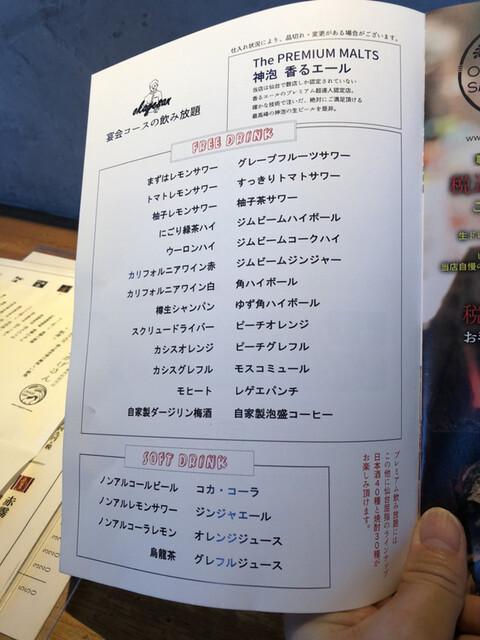 仕入れ状況により、品切れ・変更がある場合がございます。
宴会コースの飲み放題
The PREMIUM MALTS
神泡 香るエール
当店は仙台で数店しか認定されていない
香るエールのプレミアム超達人認定店。
確かな技術で注いだ、絶対にご満足頂ける
最高峰の神泡の生ビールを是非。
FREE DRINK
まずはレモンサワー
トマトレモンサワー
柚子レモンサワー
にごり緑茶ハイ
ウーロンハイ
カリフォルニアワイン赤
カリフォルニアワイン白
樽生シャンパン
スクリュードライバー
カシスオレンジ
カシスグレフル
モヒート
自家製ダージリン梅酒
グレープフルーツサワー
すっきりトマトサワー
柚子茶サワー
ジムビームハイボール
ジムビームコークハイ
ジムビームジンジャー
角ハイボール
ゆず角ハイボール
ピーチオレンジ
ピーチグレフル
モスコミュール
レゲエパンチ
自家製泡盛コーヒー
SOFT DRINK
ノンアルコールビール
ノンアルレモンサワー
ノンアルコーラレモン
烏龍茶
コカ・コーラ
ジンジャエール
オレンジジュース
グレフルジュース
プレミアム飲み放題には
この他に仙台屈指のラインナップ
日本酒40種と焼酎30種が
お楽しみ頂けます。
当店自慢の